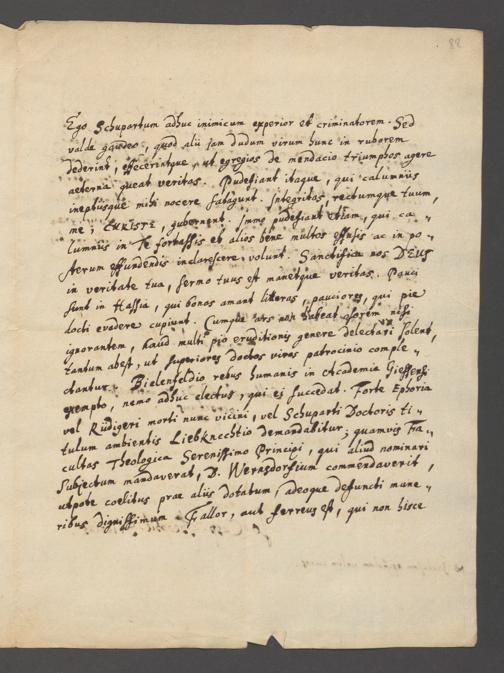 88
Ego Schupartum adhuc inimicum experior et criminatorem. Sed
valde gaudeo, quod alii jam dudum virum hunc in ruborem
dederint, effecerintque, ut egregios de mendacio triumphos agere
aeterna queat veritas. Pudefiant itaque, qui calumniis
ineptusque mihi nocere satagunt. Integritas, rectumque tuum,
me, CHRISTE, gubernent. Immo pudefiant etiam, qui ca„
lumniis in Te fortassis et alios bene multos effusis ac in po„
sterum effundendis inclarescere volunt. Sanctifica nos DEUS
in veritate tua, sermo tuus est manetque veritas. Pauci
sunt in Hassia, qui bonas amant litteras, pauciores, qui pie
docti evadere cupiunt. Cumque ars non habeat osorem nisi
ignorantem, haud multi pio eruditionis genere delectari solent,
tantum abest, ut superiores doctos viros patrocinio comple„
ctantur. Bielenfeldio rebus humanis in Academia Giessensi
exempto, nemo adhuc electus, qui ei succedat. Forte Ephoria
vel Rüdigeri morti nunc vicini, vel Schuparti Doctoris ti„
tulum ambientis Liebknechtio demandabitur; quamvis Fa„
cultas Theologica Serenissimo Principi, qui aliud nominari
Subjectum mandaverat, D. Wernsdorfium commendaverit,
utpote coelitus prae aliis dotatum, adeoque defuncti mune„
ribus dignissimum. Fallor, aut ferreus est, qui non hisce